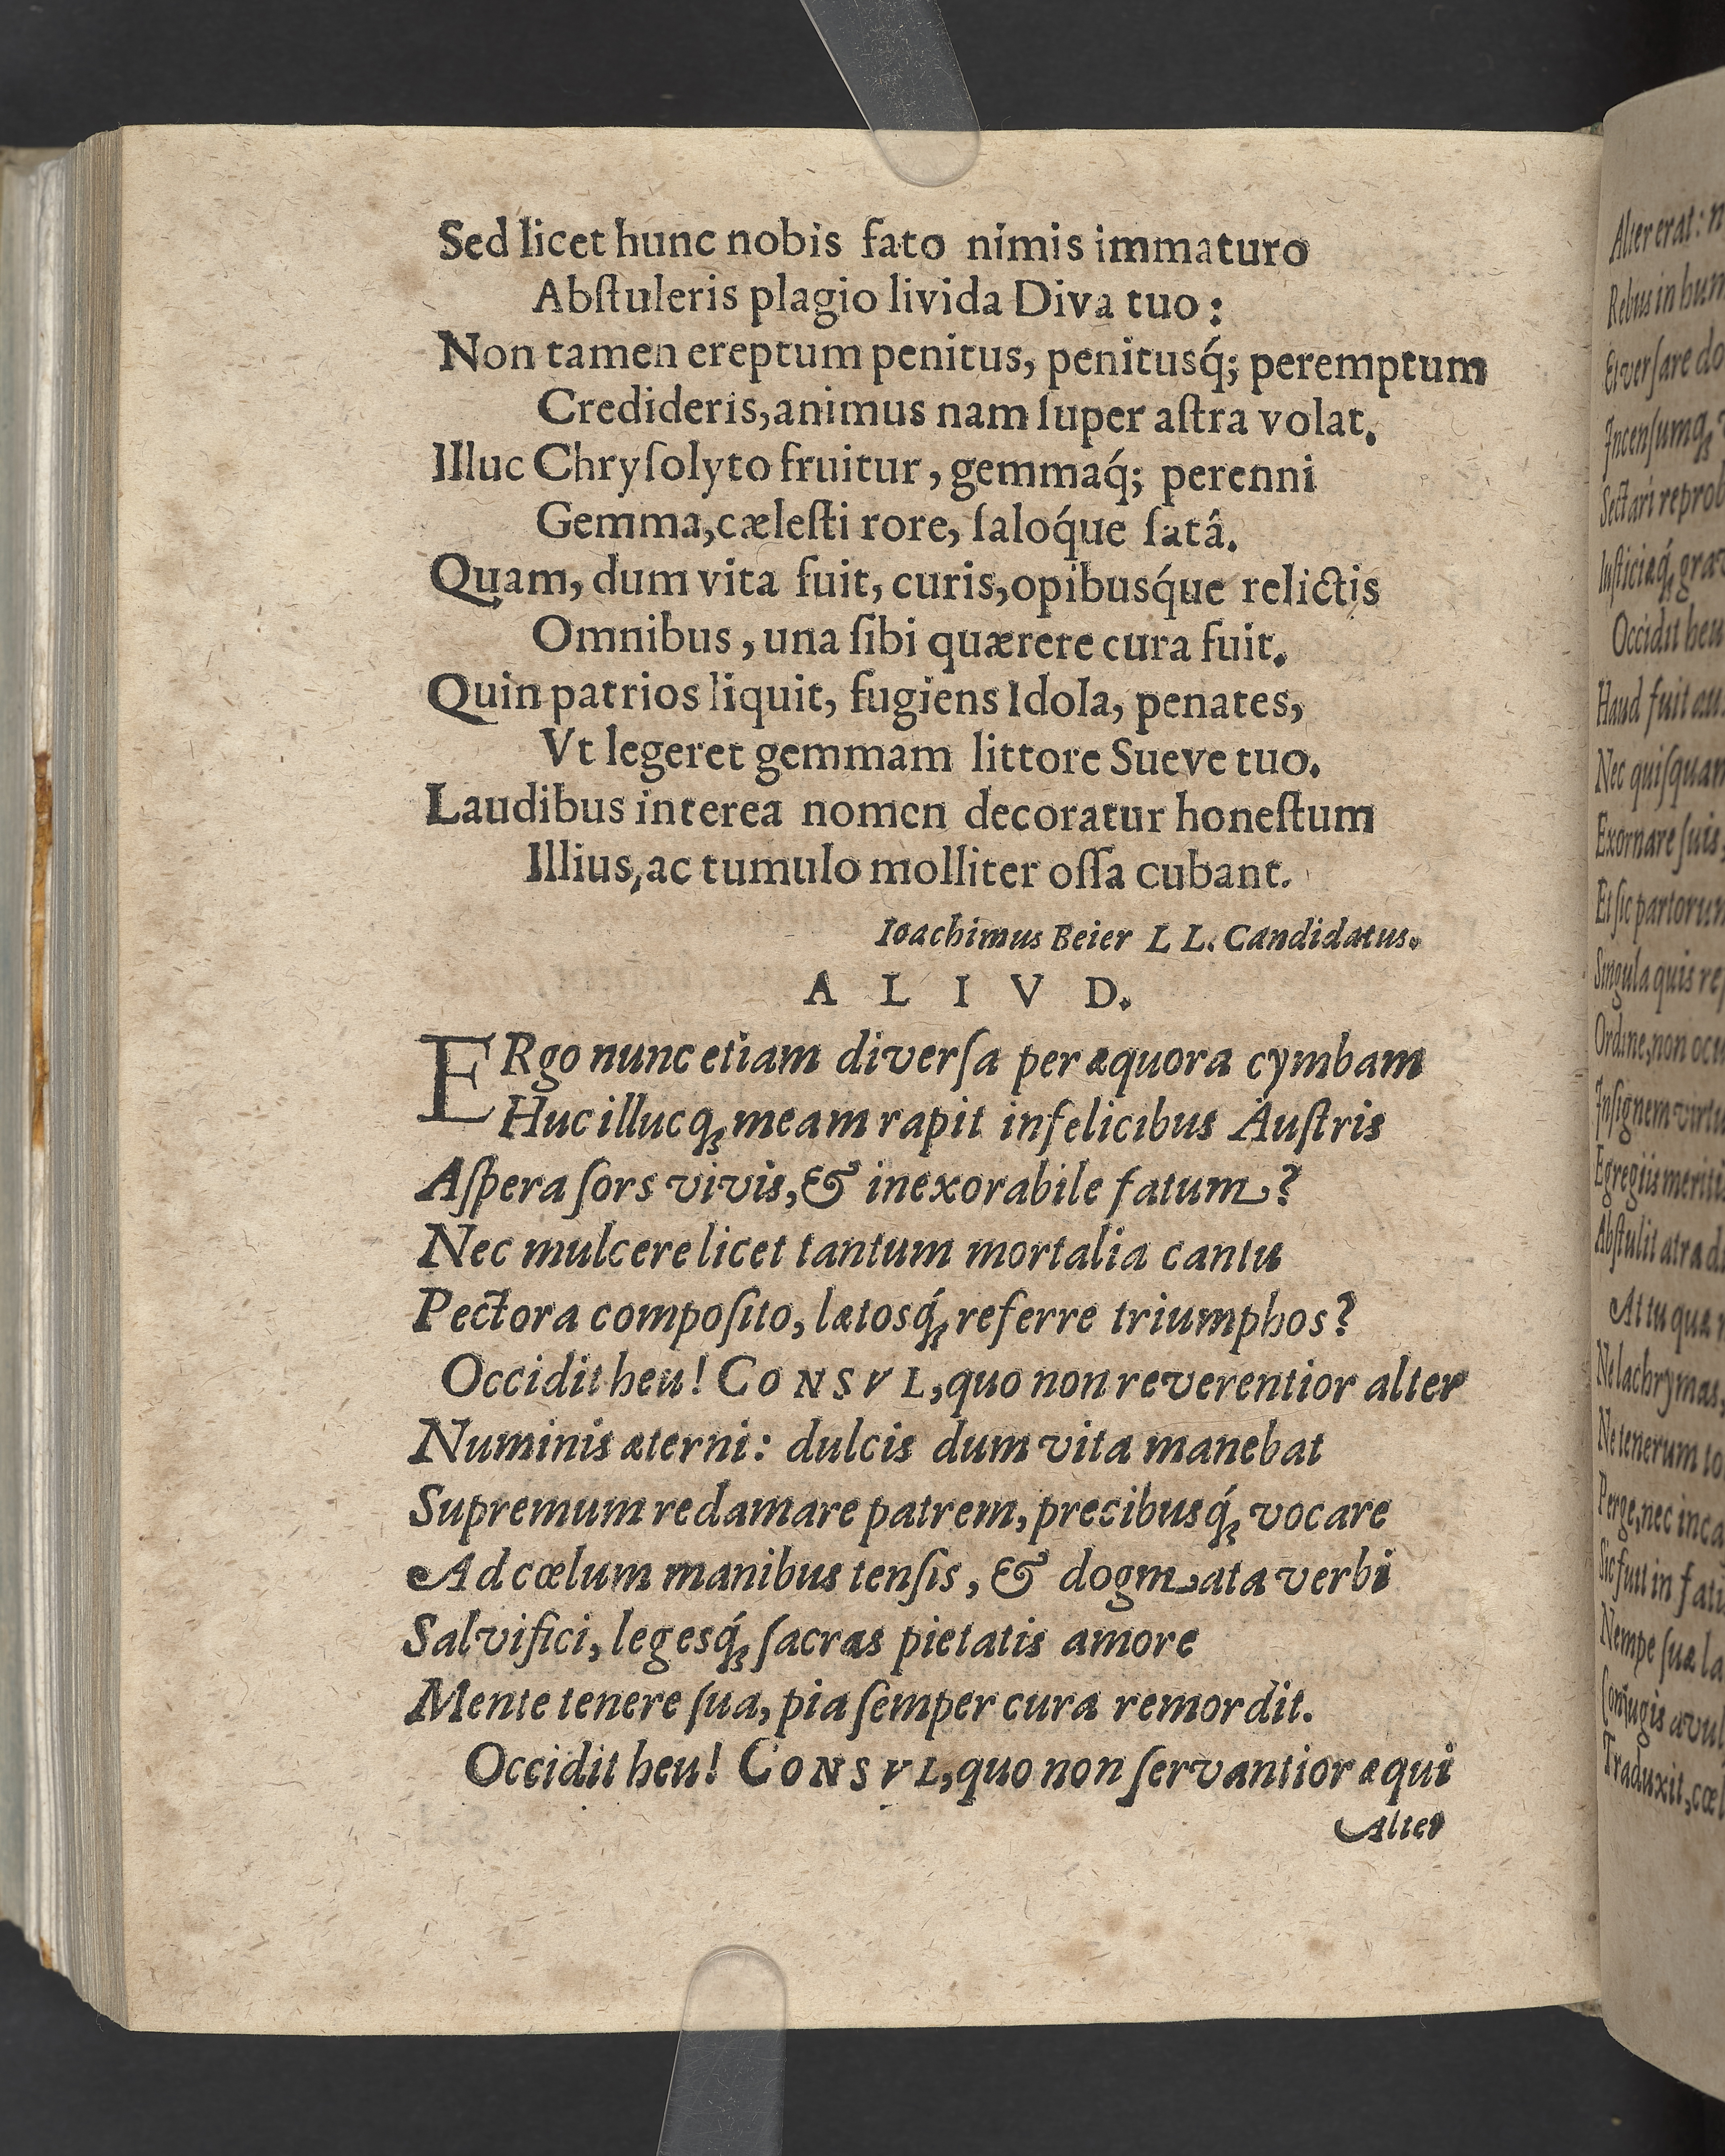 Sed licet hunc nobis fato nimis immaturo
Abſtuleris plagio livida Diva tuo:
Non tamen ereptum penitus, penitusq́; peremptum
Credideris, animus nam ſuper aſtra volat.
Illuc Chryſolyto fruitur, gemmaq́; perenni
Gemma, cæleſti rore, ſaloq́ue ſatâ.
Quam, dum vita fuit, curis, opibusq́ue relictis
Omnibus, una ſibi quærere cura fuit.
Quin patrios liquit, fugiens Idola, penates,
Vt legeret gemmam littore Sueve tuo.
Laudibus interea nomen decoratur honeſtum
Illius, ac tumulo molliter oſſa cubant.
Ioachimus Beier L L. Candidatus.
A L I V D.
ERgo nunc etiam diverſa per æquora cymbam
Huc illucq; meam rapit infelicibus Auſtris
Aſpera ſors vivis, & inexorabile fatum?
Nec mulcere licet tantum mortalia cantu
Pectora compoſito, lætosq́; referre triumphos?
Occidit heu! CONSVL, quo non reverentior alter
Numinis æterni: dulcis dum vita manebat
Supremum redamare patrem, precibusq́; vocare
Ad cœlum manibus tenſis, & dogmata verbi
Salvifici, legesq́; ſacras pietatis amore
Mente tenere ſua, pia ſemper cura remordit.
Occidit heu! CONSVL, quo non ſervantior æqui
Alter
Alter erat: n
Rebus in hum
Et verſare do
Incenſumq;
Sectari reprob
Iuſticiæq́; græ
Occidit heu
Haud fuit au
Nec quiſquam
Exornare ſuis,
Et ſic partorum
Singula quis re
Ordine, non ocu
Inſignem virtu
Egregiis meriti
Abſtulit atra d
At tu quæ
Ne lachrymas,
Ne tenerum to
Perge, nec inca
Sic fuit in fati
Nempe ſuæ la
Conjugis avul
Traduxit, cœl